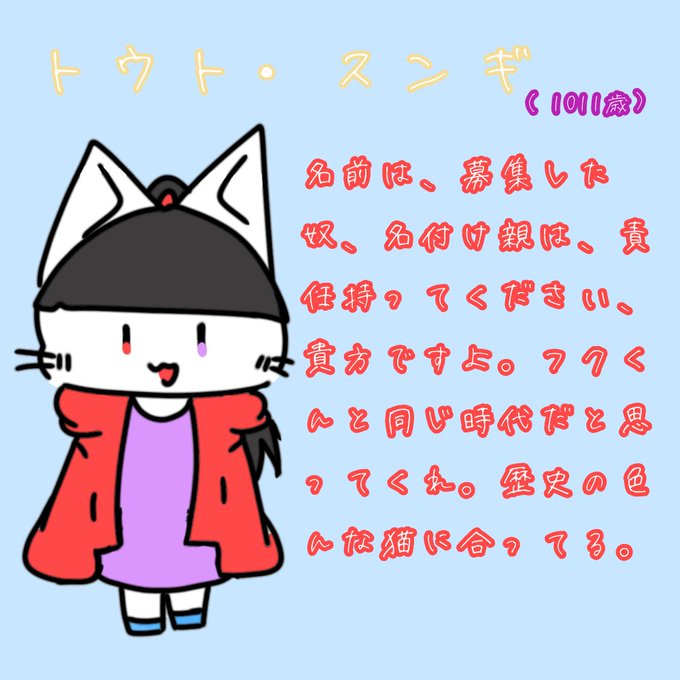 トウト・スンギ
(1011歳)
名前は、募集した
奴、名付け親は、責
任持ってください、
貴方ですよ。フクく
んと同じ時代だと思
ってくれ。歴史の色
んな猫に合ってる。